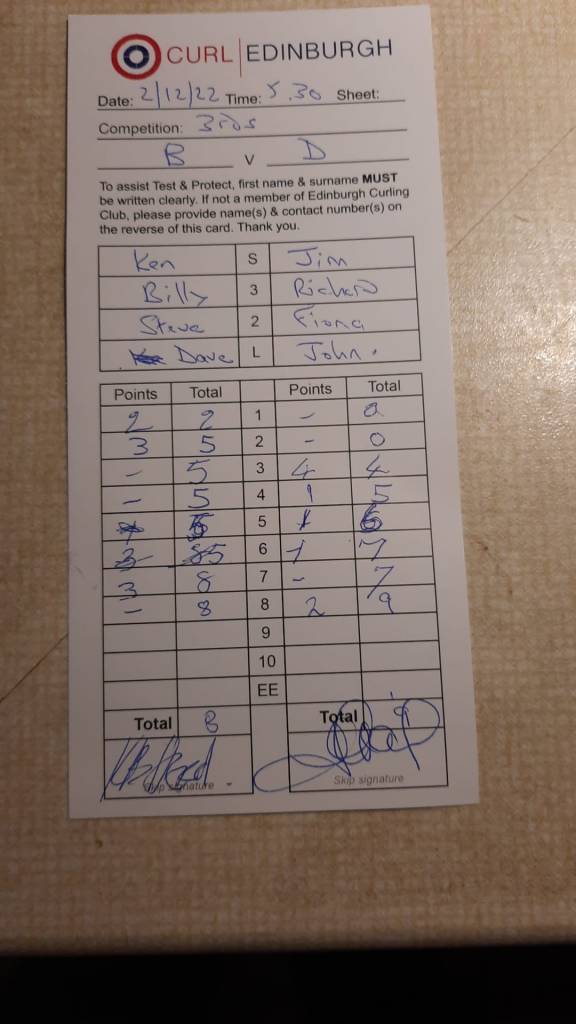 CURL EDINBURGH
Date: 2/12/22 Time: 5.30 Sheet:
Competition: 3rds
B V D
To assist Test & Protect, first name & surname MUST
be written clearly. If not a member of Edinburgh Curling
Club, please provide name(s) & contact number(s) on
the reverse of this card. Thank you.
Ken S Jim
Billy 3 Richard
Steve 2 Fiona
Dave L John.
Points Total Points Total
2 2 1 - 0
3 5 2 - 0
- 5 3 4 4
- 5 4 1 5
5 5 1 6
5 6 1 7
3 8 7 - 7
- 8 8 2 9
9
10
EE
Total 8 Total 9
Skip signature Skip signature